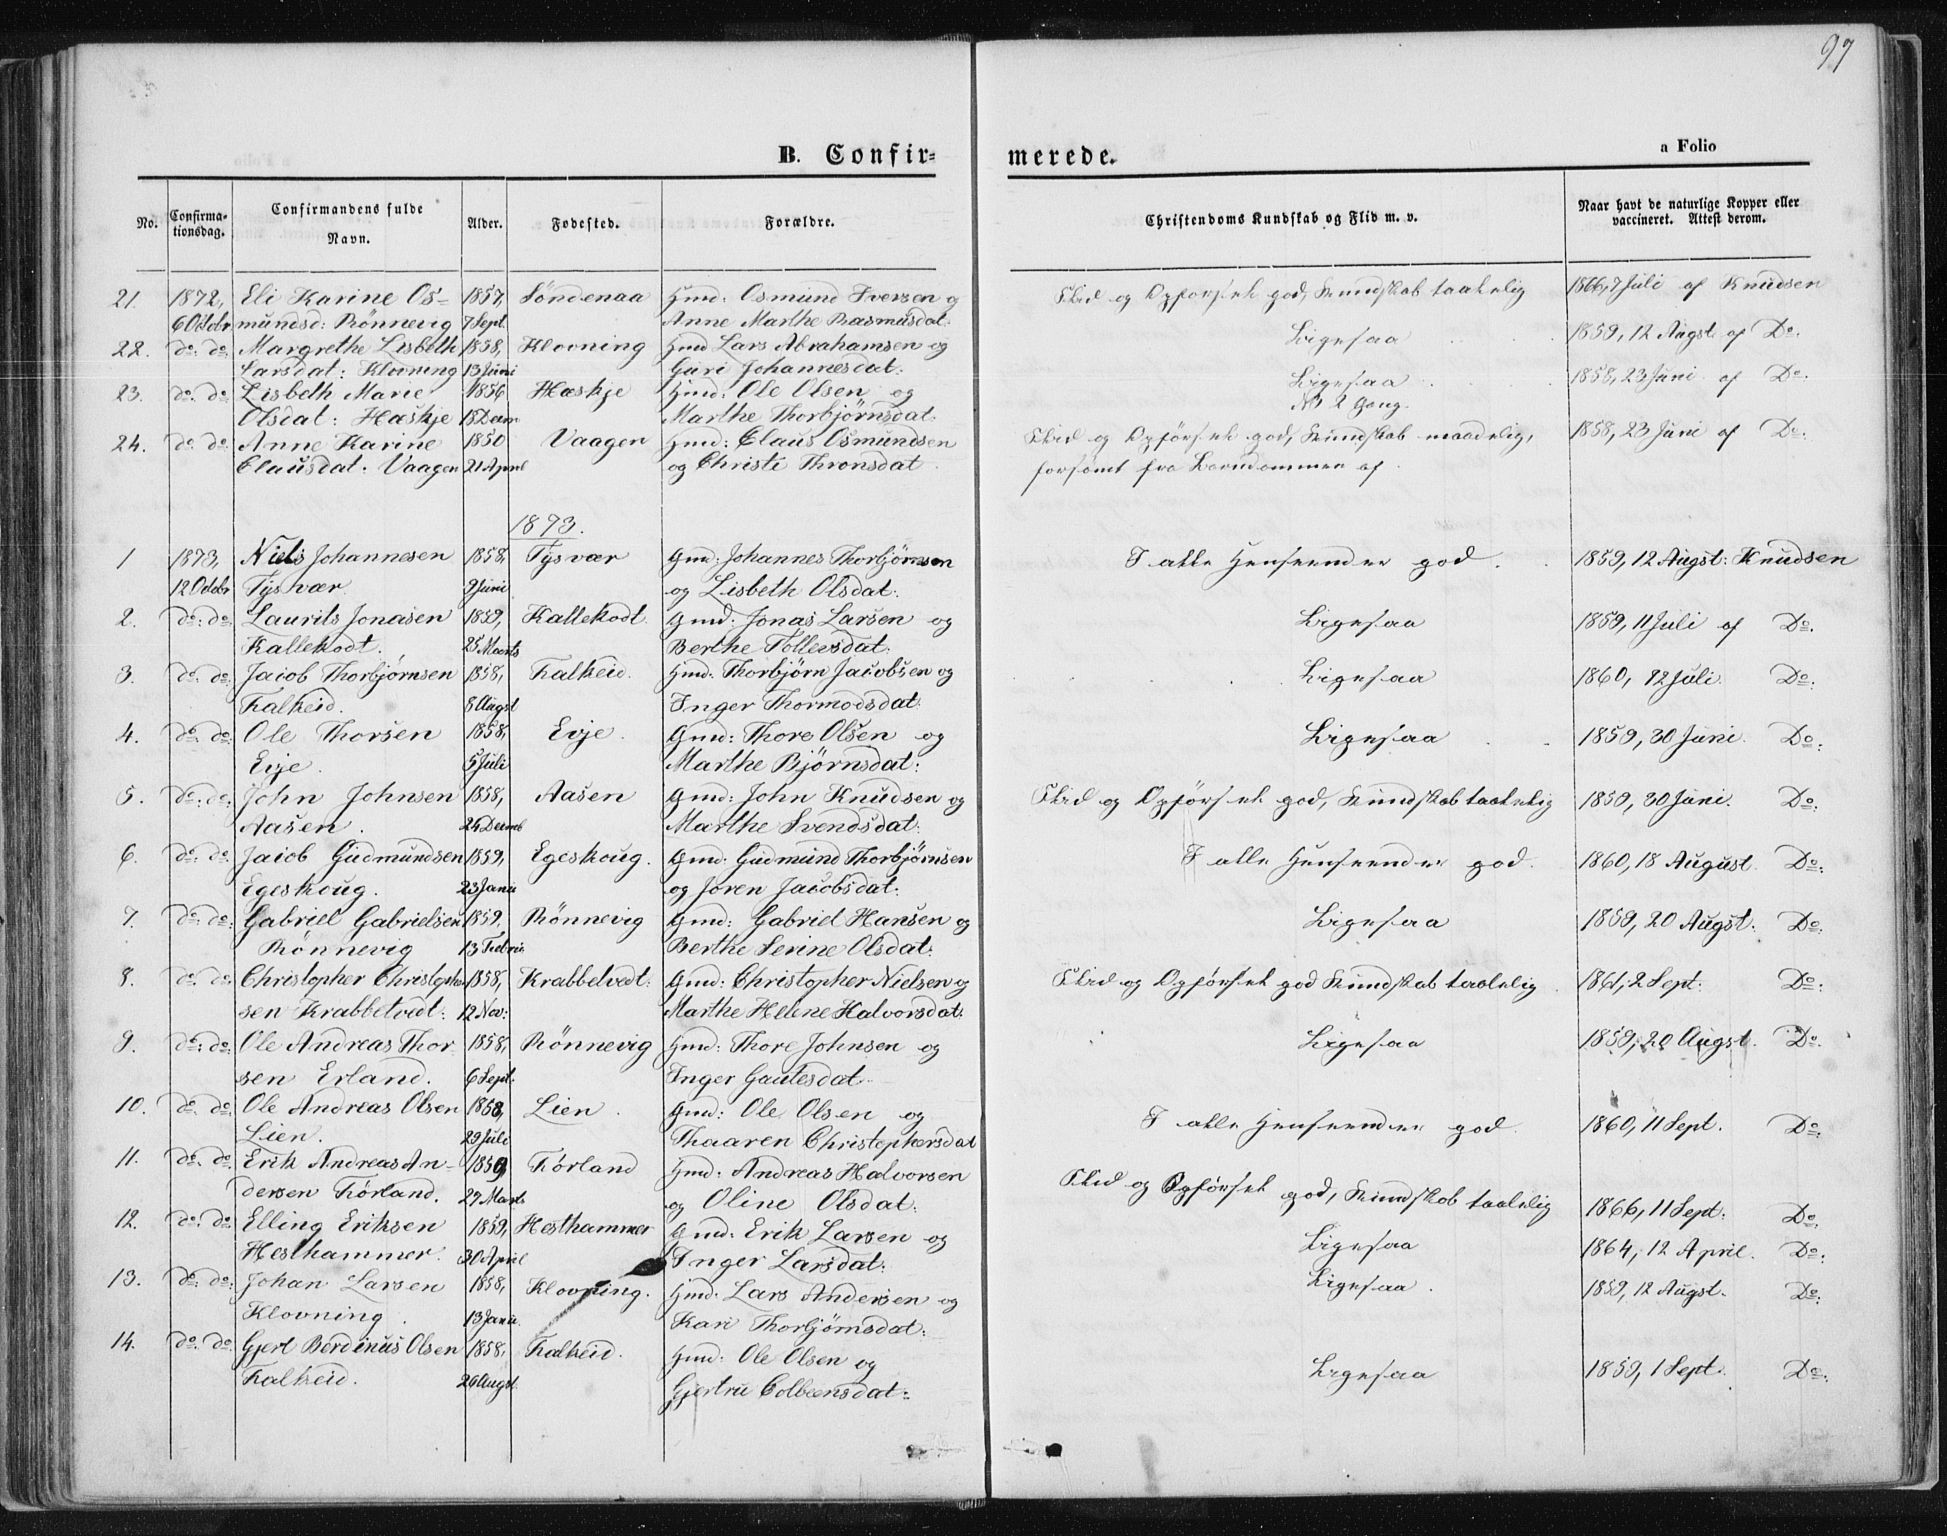 97
B. Confirmerede.
a Folio
No. Confirmationsdag. Confirmandens fulde Navn. Alder. Fødested. Forældre. Christendoms Kundskab og Flid m. v. Naar havt de naturlige Kopper eller vaccineret. Attest derom.
21. 1872, Eli Karine Os- 1857, Söndenaa Hmd: Osmund Iversen og Flid og Opförsel god, Kundskab taalelig 1866, 7 Juli af Knudsen
6 Octobr mundsd: Rönnevig 7 Sept. Anne Marthe Rasmusdat:
22. do: do: Margrethe Lisbeth 1858, Klovning Hmd Lars Abrahamsen og Ligesaa 1859, 12 Augst af Do:
Larsdat: Klovning 13 Juni Guri Johannesdat:
23. do: do: Lisbeth Marie 1856 Hæskje Hmd: Ole Olsen og Ligesaa 1858, 23 Juni af Do:
Olsdat: Hæskje 18 Decm Marthe Thorbjörnsdat: 2 Gang.
24. do: do: Anne Karine 1850 Vaagen Hmd: Claus Osmundsen Flid og Opförsel god, Kundskab maadelig, 1858, 23 Juni af Do:
Clausdat: Vaagen 21 April og Christi Thronsdat forsömt fra Barndommen af.
1873.
1 1873, Niels Johannesen 1858, Tysvær Gmd: Johannes Thorbjörnsen I alle Henseender god. 1859, 12 Augst: Knudsen
12 Octobr Tysvær 9 Juni og Lisbeth Olsdat:
2. do: do: Laurits Jonasen 1859, Kallekodt Gmd: Jonas Larsen og Ligesaa 1859, 11 Juli af Do.
Kallekodt. 25 Marts Berthe Tollevsdat:
3. do: do: Jacob Thorbjörnsen 1858, Falkeid. Hmd: Thorbjörn Jacobsen og Ligesaa 1860, 12 Juli. Do:
Falkeid. 8 Augst Inger Thormodsdat:
4. do: do: Ole Thorsen 1858, Evje. Gmd: Thore Olsen og Ligesaa 1859, 30 Juni. Do:
Evje. 5 Juli Marthe Björnsdat:
5. do: do: John Johnsen 1858, Aasen Gmd: John Knudsen og Flid og Opförsel god, Kundskab taalelig 1859, 30 Juni. Do:
Aasen. 24 Decmb Marthe Svendsdat:
6. do: do: Jacob Gudmundsen 1859, Egeskoug. Gmd: Gudmund Thorbjörnsen I alle Henseender god. 1860, 18 August. Do:
Egeskoug. 23 Janu og Joren Jacobsdat:
7. do: do: Gabriel Gabrielsen 1859, Rönnevig Gmd: Gabriel Hansen og Ligesaa 1859, 20 Augst: Do:
Rönnevig 13 Febru Berthe Serine Olsdat:
8. do: do: Christopher Christopher- 1858, Krabbetvedt: Gmd: Christopher Nielsen og Flid og Opförsel god Kundskab taalelig. 1861, 2 Sept: Do:
sen Krabbetvedt: 12 Nov: Marthe Helene Halvorsdat:
9. do: do: Ole Andreas Thor- 1858, Rönnevig Hmd: Thore Johnsen og Ligesaa 1859, 20 Augst. Do:
sen Erland. 6 Sept. Inger Gautesdat.
10. do: do: Ole Andreas Olsen 1858, Lien. Gmd: Ole Olsen og I alle Henseender god. 1860, 11 Sept. Do:
Lien. 29 Juli Thaaren Christophersdat
11. do: do: Erik Andreas An- 1859 Förland Hmd: Andreas Halvorsen Flid og Opförsel god, Kundskab taalelig 1866, 11 Sept: Do:
dersen Förland. 27 Marts og Oline Olsdat:
12. do: do: Elling Eriksen 1859, Hesthammer Gmd: Erik Larsen og Ligesaa 1864, 12 April. Do:
Hesthammer. 30 April Inger Larsdat:
13. do: do: Johan Larsen 1858, Klovning. Hmd: Lars Andersen og Ligesaa. 1859, 12 Augst. Do:
Klovning. 13 Janu. Kari Thorbjörnsdat:
14. do: do: Gjert Berdinus Olsen 1858, Falkeid. Hmd: Ole Olsen og Ligesaa 1859, 1 Sept. Do:
Falkeid. 26 Augst. Gjertru Colbeensdat: